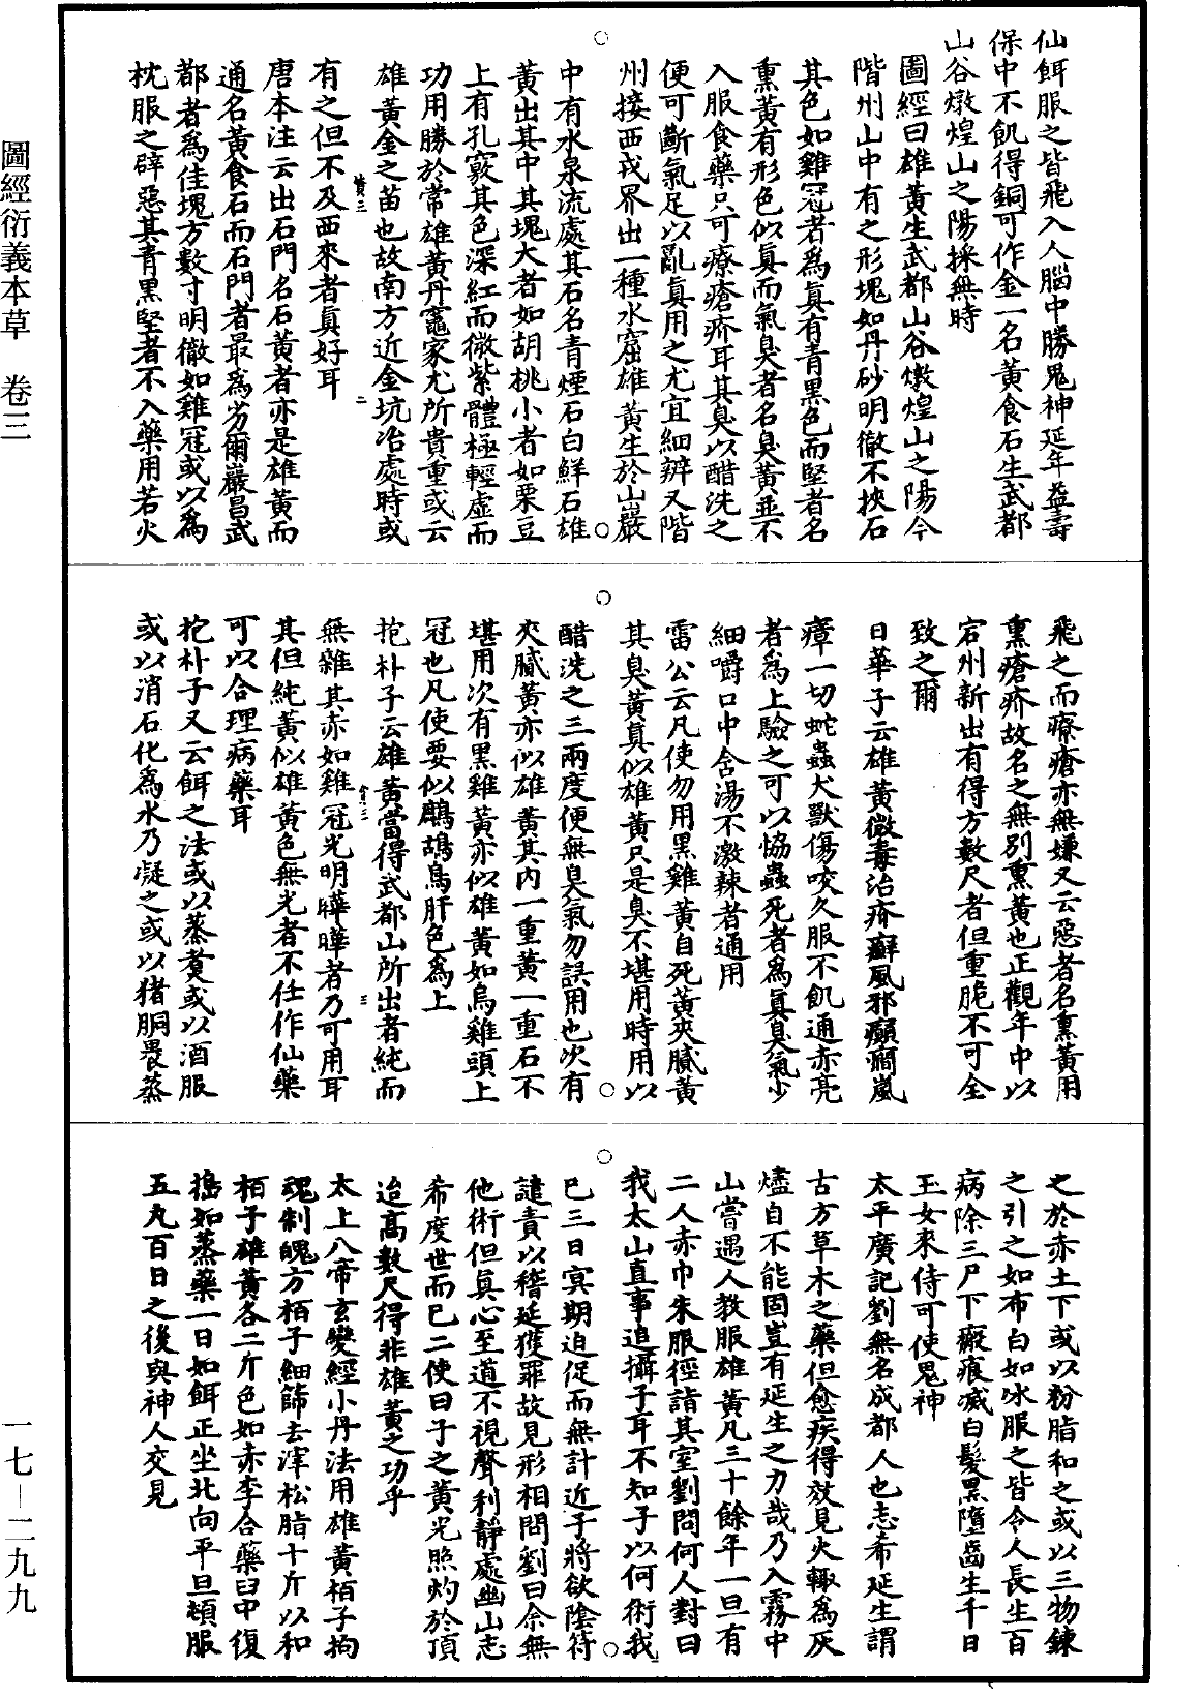 仙餌服之皆飛入人腦中勝鬼神延年益壽
保中不飢得銅可作金一名黃食石生武都
山谷燉煌山之陽採無時
圖經曰雄黃生武都山谷燉煌山之陽今
階州山中有之形塊如丹砂明徹不挾石
其色如雞冠者為真有青黑色而堅者名
熏黃有形色似真而氣臭者名臭黃並不
入服食藥只可療瘡疥耳其臭以醋洗之
便可斷氣足以亂真用之尤宜細辨又階
州接西戎界出一種水窟雄黃生於山巖
中有水泉流處其石名青煙石白鮮石雄
黃出其中其塊大者如胡桃小者如粟豆
上有孔竅其色深紅而微紫體極輕虛而
功用勝於常雄黃丹竈家尤所貴重或云
雄黃金之苗也故南方近金坑冶處時或
有之但不及西來者真好耳
唐本注云出石門名石黃者亦是雄黃而
通名黃食石而石門者最為劣爾巖昌武
都者為佳塊方數寸明徹如雞冠或以為
枕服之辟惡其青黑堅者不入藥用若火
飛之而療瘡亦無嫌又云惡者名熏黃用
熏瘡疥故名之無別熏黃也正觀年中以
宕州新出有得方數尺者但重脆不可全
致之爾
日華子云雄黃微毒治疥癬風邪癲癇嵐
瘴一切蛇蟲犬獸傷咬久服不飢通赤亮
者為上驗之可以熁蟲死者為真臭氣少
細嚼口中含湯不激辣者通用
雷公云凡使勿用黑雞黃自死黃夾膩黃
其臭黃真似雄黃只是臭不堪用時用以
醋洗之三兩度便無臭氣勿誤用也次有
夾膩黃亦似雄黃其內一重黃一重石不
堪用次有黑雞黃亦似雄黃如烏雞頭上
冠也凡使要似鷓鴣鳥肝色為上
抱朴子云雄黃當得武都山所出者純而
無雜其赤如雞冠光明曄曄者乃可用耳
其但純黃似雄黃色無光者不任作仙藥
可以合理病藥耳
抱朴子又云餌之法或以蒸煑或以酒服
或以消石化為水乃凝之或以猪胴畏蒸
之於赤土下或以粉脂和之或以三物鍊
之引之如布白如冰服之皆令人長生百
病除三尸下瘢痕滅白髮黑墮齒生千日
玉女來侍可使鬼神
太平廣記劉無名成都人也志希延生謂
古方草木之藥但愈疾得效見火輒為灰
燼自不能固豈有延生之力哉乃入霧中
山嘗遇人教服雄黃凡三十餘年一旦有
二人赤巾朱服徑詣其室劉問何人對曰
我太山直事追攝子耳不知子以何術我
已三日冥期迫促而無計近子將欲陰符
譴責以稽延獲罪故見形相問劉曰余無
他術但真心至道不視聲利靜處幽山志
希度世而已二使曰子之黃光照灼於頂
迨高數尺得非雄黃之功乎
太上八帝玄變經小丹法用雄黃栢子拘
魂制魄方栢子細篩去滓松脂十斤以和
栢子雄黃各二斤色如赤李合藥臼中復
搗如蒸藥一日如餌正坐北向平旦頓服
五丸百日之後與神人交見
圖經衍義本草　卷三
一七—二九九